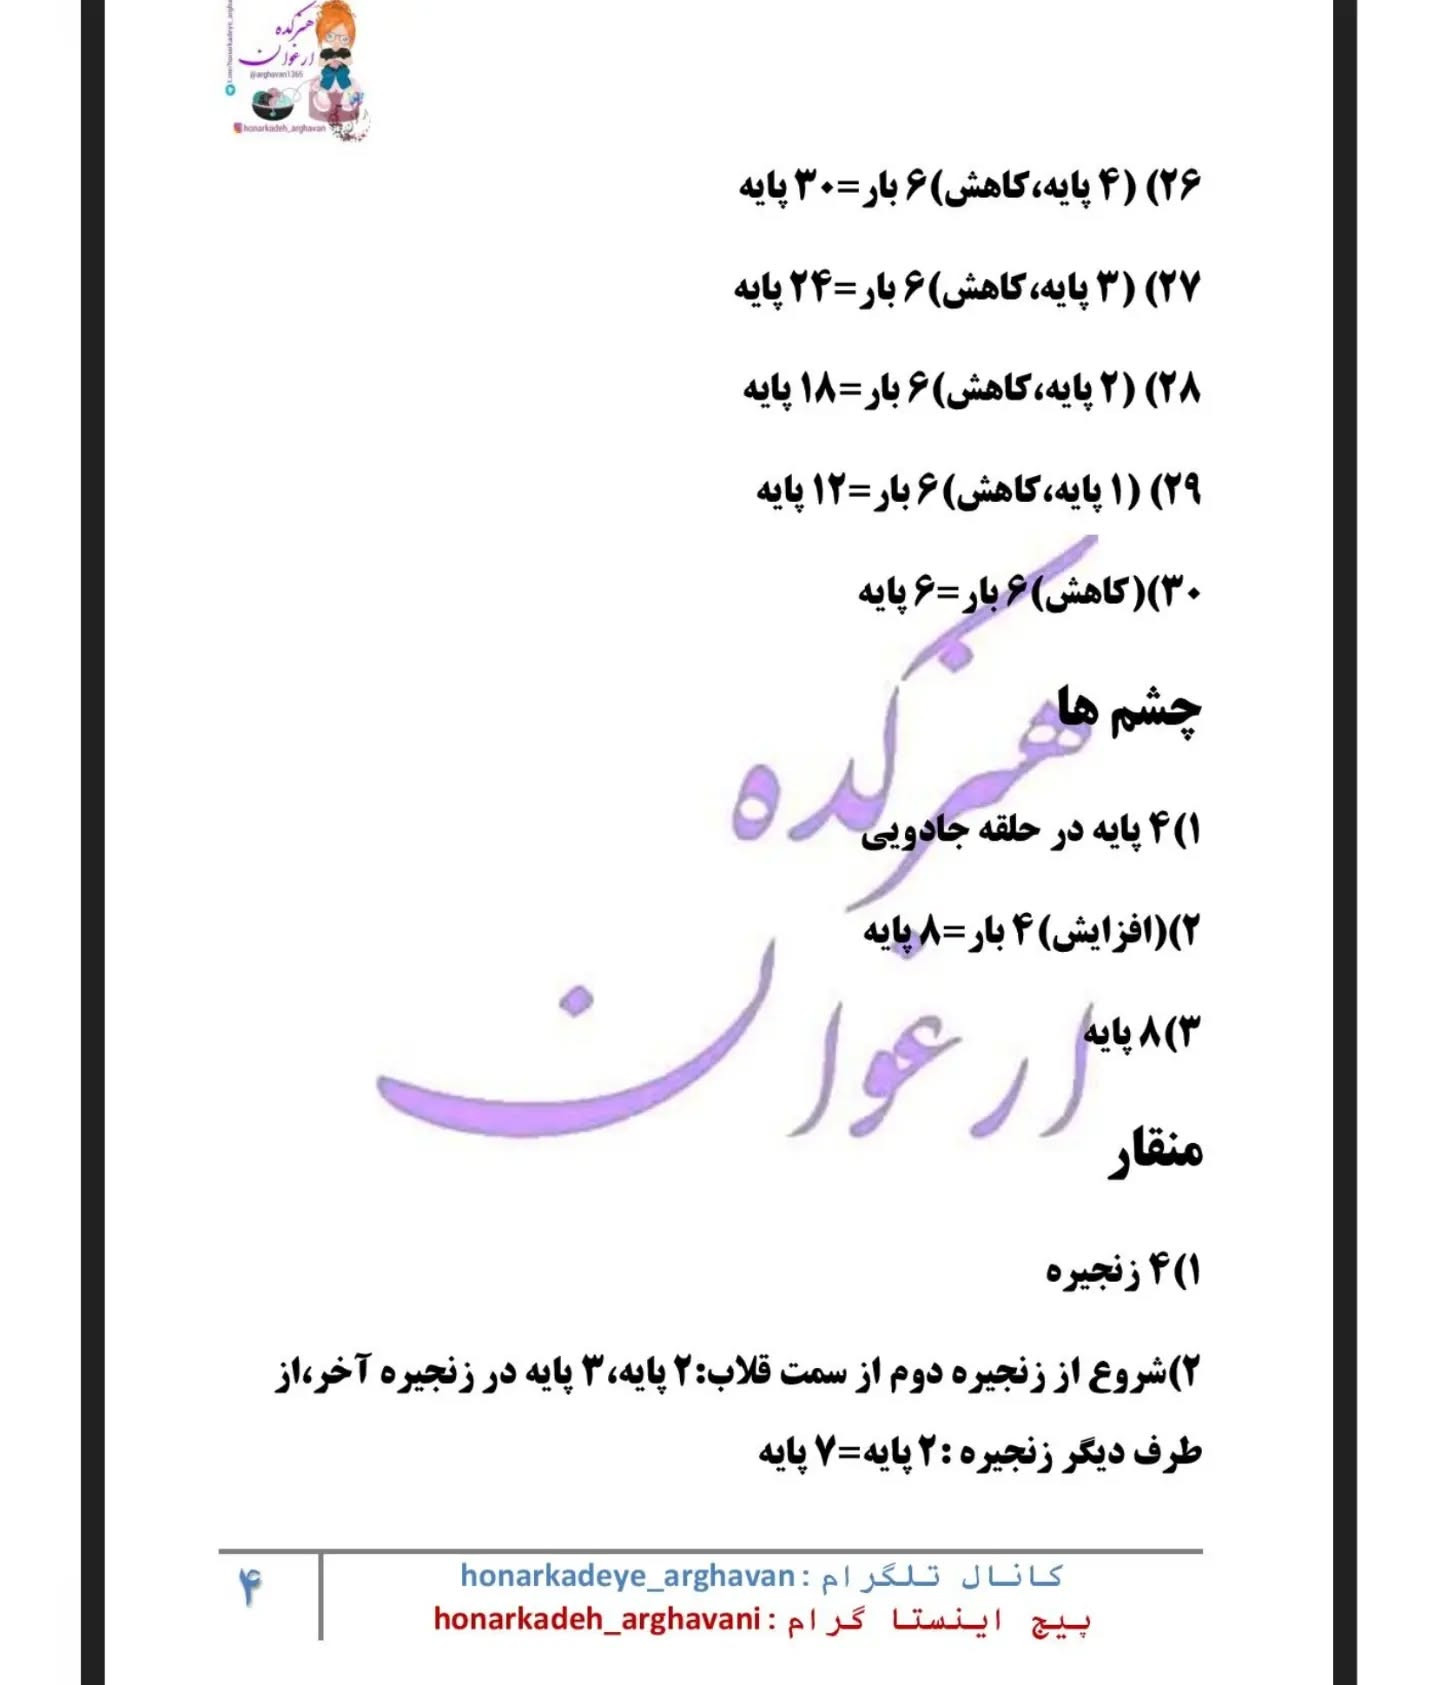 هنرکده
ارغوان
@arghavan1365
honarkadeh_arghavan
۲۶) (۴ پایه،کاهش)۶ بار=۳۰ پایه
۲۷) (۳ پایه،کاهش)۶ بار=۲۴ پایه
۲۸) (۲ پایه،کاهش)۶ بار=۱۸ پایه
۲۹) (۱ پایه،کاهش)۶ بار=۱۲ پایه
۳۰)(کاهش)۶ بار=۶ پایه
چشم ها
۱)۴ پایه در حلقه جادویی
۲)(افزایش)۴ بار=۸ پایه
۳)۸ پایه
هنرکده
ارغوان
منقار
۱)۴ زنجیره
۲)شروع از زنجیره دوم از سمت قلاب:۲ پایه،۳ پایه در زنجیره آخر،از
طرف دیگر زنجیره :۲ پایه=۷ پایه
۴
کانال تلگرام : honarkadeye_arghavan
پیج اینستا گرام : honarkadeh_arghavani